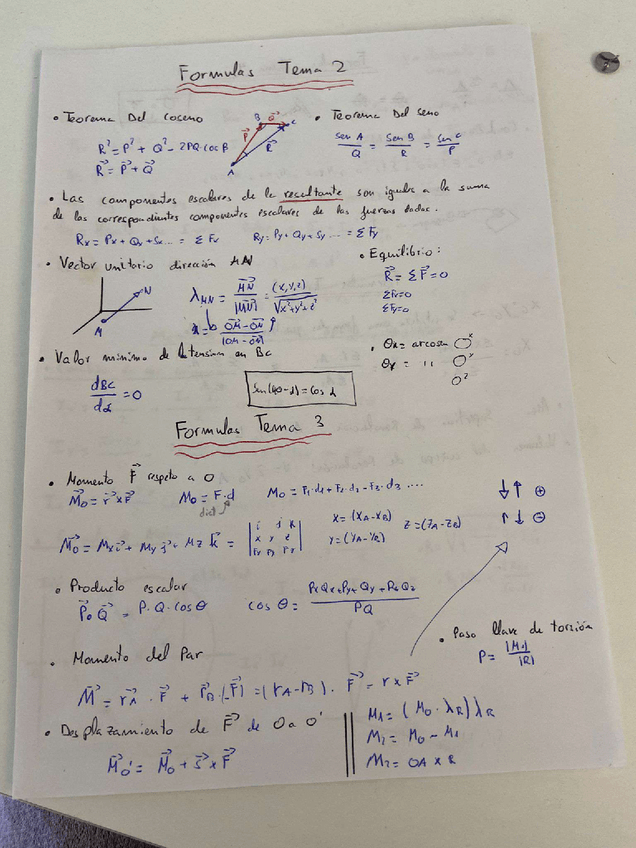 Formulas Tema 2
• Teorema Del coseno
R² = P² + Q² - 2PQ·cos B
R⃗ = P⃗ + Q⃗
A B C P⃗ Q⃗ R⃗
• Teorema Del seno
sen A / Q = sen B / R = sen C / P
• Las componentes escalares de la resultante son iguales a la suma
de las correspondientes componentes escalares de las fuerzas dadas.
Rx = Px + Qx + Sx... = ΣFx Ry = Py + Qy + Sy ... = ΣFy
• Vector unitario dirección MN
M N
λMN = MN⃗ / |MN⃗| = (x, y, z) / √x²+y²+z²
OM⃗ - ON⃗ / |OM - ON|
• Equilibrio:
R⃗ = ΣF⃗ = 0
ΣFx=0
ΣFy=0
• Valor minimo de la tension en BC
dBC / dα = 0
Sen(90-α) = cos α
• θx = arcosen x
θy = 11 y
z
Formulas Tema 3
• Momento F⃗ respeto a O
M⃗o = r⃗ x F⃗ Mo = F·d Mo = F1·d1 + F2·d2 - F3·d3 ...
dist
↓ ↑ ⊕
↑ ↓ ⊖
M⃗o = Mx i⃗ + My j⃗ + Mz k⃗ = | i j k | x y z | Fx Fy Fz |
x = (xA - xB) z = (zA - zB)
y = (yA - yB)
• Producto escalar
P⃗ • Q⃗ = P·Q·cos θ cos θ = PxQx + Py + Qy + PzQz / PQ
• Paso llave de torsión
P = |M1| / |R|
• Momento del Par
M⃗ = r⃗A · F⃗ + r⃗B · (-F⃗) = (rA - rB) · F⃗ = r x F⃗
• Desplazamiento de F⃗ de O a O'
M⃗o' = M⃗o + s⃗ x F⃗
M1 = (Mo · λR) λR
M2 = Mo - M1
M2 = OA x R